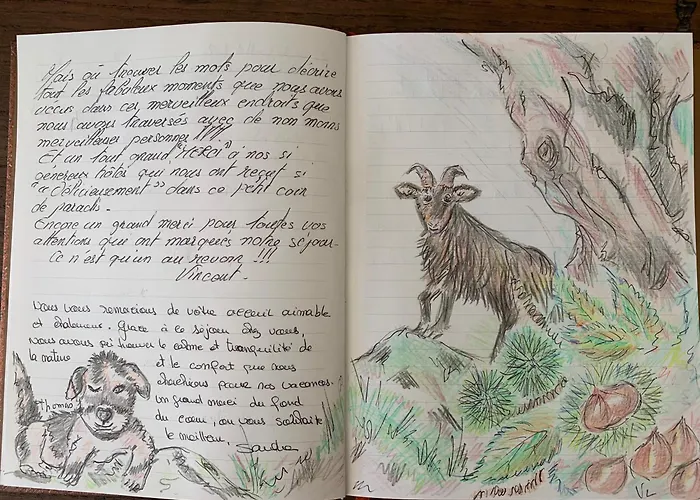 Mais où trouver les mots pour décrire
tout les fabuleux moments que nous avons
vécus dans ces merveilleux endroits que
nous avons traversés avec de non moins
merveilleuses personnes !!!!
Et un tout grand "MERCI" à nos si
généreux hôtes qui nous ont reçut si
"Délicieusement" dans ce petit coin
de paradis.
Encore un grand merci pour toutes vos
attentions qui ont marquées notre séjour.
Ce n'est qu'un au revoir !!!
Vincent.
Nous vous remercions de votre accueil aimable
et chaleureux. Grace à ce séjour chez vous,
nous avons pu trouver le calme et tranquilité de
la nature
et le confort que nous
cherchions pour nos vacances.
Un grand merci du fond
du cœur, on vous souhaite
le meilleur. Sandra
Thomas